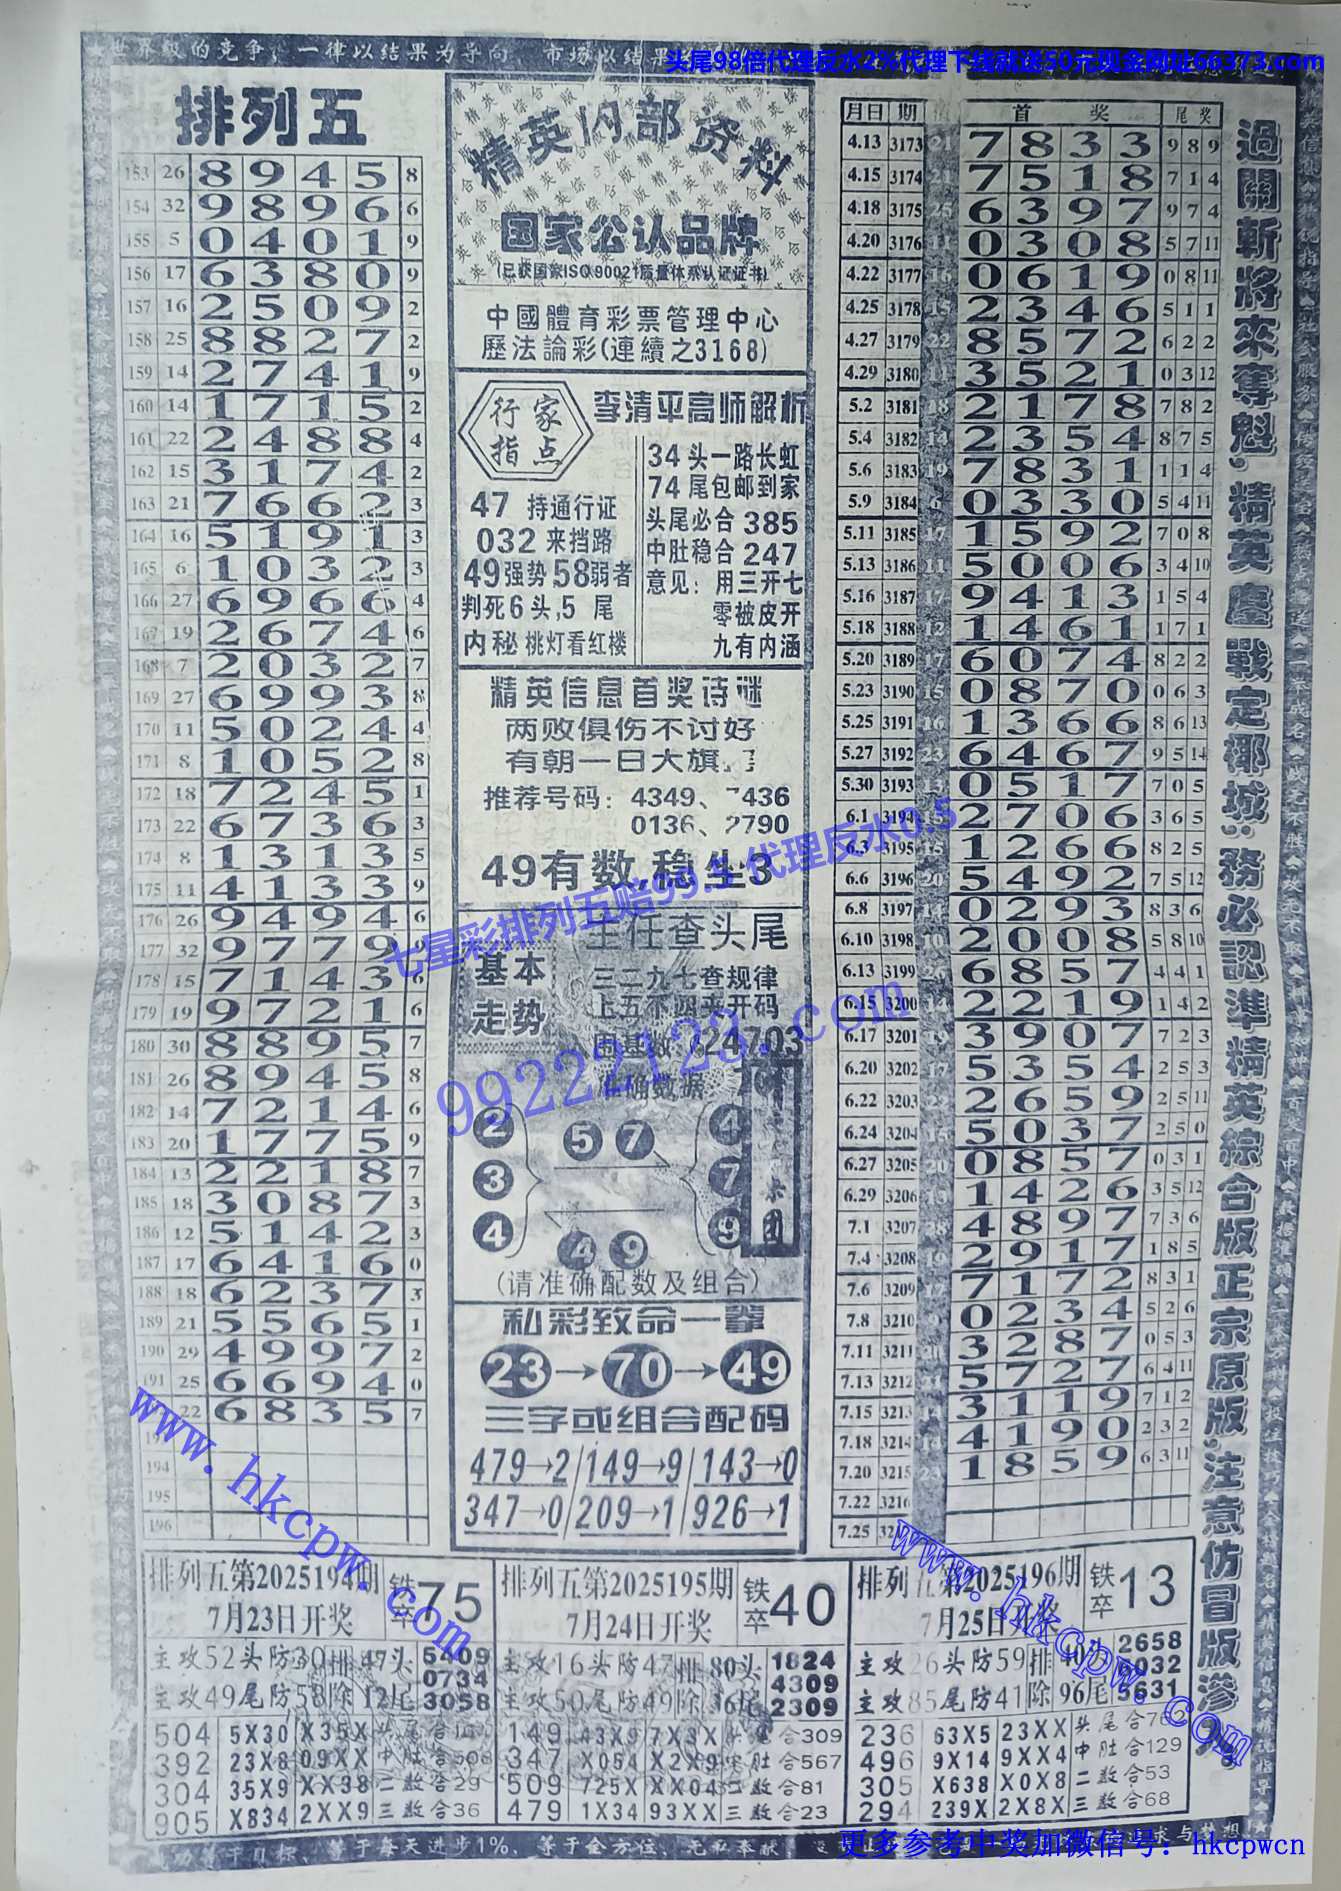 头尾98倍代理反水2%代理下线就送50元现金网址66373.com
排列五
153 26 8 9 4 5 8
154 32 9 8 9 6 6
155 5 0 4 0 1 9
156 17 6 3 8 0 9
157 16 2 5 0 9 2
158 25 8 8 2 7 2
159 14 2 7 4 1 9
160 14 1 7 1 5 2
161 22 2 4 8 8 4
162 15 3 1 7 4 2
163 21 7 6 6 2 3
164 16 5 1 9 1 3
165 6 1 0 3 2 3
166 27 6 9 6 6 4
167 19 2 6 7 4 6
168 7 2 0 3 2 7
169 27 6 9 9 3 8
170 11 5 0 2 4 4
171 8 1 0 5 2 8
172 18 7 2 4 5 1
173 22 6 7 3 6 3
174 8 1 3 1 3 5
175 11 4 1 3 3 9
176 26 9 4 9 4 6
177 32 9 7 7 9 9
178 15 7 1 4 3 6
179 19 9 7 2 1 6
180 30 8 8 9 5 7
181 26 8 9 4 5 8
182 14 7 2 1 4 6
183 20 1 7 7 5 9
184 13 2 2 1 8 7
185 18 3 0 8 7 3
186 12 5 1 4 2 3
187 17 6 4 1 6 0
188 18 6 2 3 7 3
189 21 5 5 6 5 1
190 29 4 9 9 7 2
191 25 6 6 9 4 0
22 6 8 3 5 7
194
195
196
精英内部资料
国家公认品牌
(已获国家ISO90021质量体系认证证书)
中國體育彩票管理中心
歷法論彩(連續之3168)
行家指点
李清平高师解析
47 持通行证
032来挡路
49强势58弱者
判死6头,5 尾
内秘 桃灯看红楼
34头一路长虹
74尾包邮到家
头尾必合385
中肚稳合247
意见：用三开七
零被皮开
九有内涵
精英信息首奖诗谜
两败俱伤不讨好
有朝一日大旗
推荐号码：4349、7436
0136、2790
49有数,稳坐3
七星彩排列五赔99.5 代理反水0.5
基本走势
主任查头尾
三二九七查规律
上五不四来开码
围基数:
准确数据
99222123.com
2 5 7 4
3 7
4 4 9 9
(请准确配数及组合)
私彩致命一辈
23→70→49
三字或组合配码
479→2/149→9/143→0
347→0/209→1/926→1
月日 期 首奖 尾奖
4.13 3173 21 7 8 3 3 9 8 9
4.15 3174 21 7 5 1 8 7 1 4
4.18 3175 25 6 3 9 7 9 7 4
4.20 3176 11 0 3 0 8 5 7 11
4.22 3177 16 0 6 1 9 0 8 11
4.25 3178 15 2 3 4 6 5 1 1
4.27 3179 22 8 5 7 2 6 2 2
4.29 3180 11 3 5 2 1 0 3 12
5.2 3181 18 2 1 7 8 7 8 2
5.4 3182 14 2 3 5 4 8 7 5
5.6 3183 19 7 8 3 1 1 1 4
5.9 3184 6 0 3 3 0 5 4 11
5.11 3185 17 1 5 9 2 7 0 8
5.13 3186 11 5 0 0 6 3 4 10
5.16 3187 17 9 4 1 3 1 5 4
5.18 3188 12 1 4 6 1 1 7 1
5.20 3189 17 6 0 7 4 8 2 2
5.23 3190 15 0 8 7 0 0 6 3
5.25 3191 16 1 3 6 6 8 6 13
5.27 3192 23 6 4 6 7 9 5 14
5.30 3193 13 0 5 1 7 7 0 5
6.1 3194 15 2 7 0 6 3 6 5
6.3 3195 15 1 2 6 6 8 2 5
6.6 3196 20 5 4 9 2 7 5 12
6.8 3197 14 0 2 9 3 8 3 6
6.10 3198 10 2 0 0 8 5 8 10
6.13 3199 26 6 8 5 7 4 4 1
6.15 3200 14 2 2 1 9 1 4 2
6.17 3201 19 3 9 0 7 7 2 3
6.20 3202 17 5 3 5 4 2 5 3
6.22 3203 22 2 6 5 9 2 5 11
6.24 3204 15 5 0 3 7 2 5 0
6.27 3205 20 0 8 5 7 0 3 1
6.29 3206 13 1 4 2 6 3 5 12
7.1 3207 28 4 8 9 7 7 3 6
7.4 3208 19 2 9 1 7 1 8 5
7.6 3209 17 7 1 7 2 8 3 1
7.8 3210 9 0 2 3 4 5 2 6
7.11 3211 20 3 2 8 7 0 5 3
7.13 3212 21 5 7 2 7 6 4 11
7.15 3213 14 3 1 1 9 7 1 2
7.18 3214 14 4 1 9 0 2 3 2
7.20 3215 23 1 8 5 9 6 3 11
7.22 3216
7.25
過關斬將來奪魁,精英鏖戰定椰城;務必認準精英綜合版正宗原版,注意仿冒版滲入。
www.hkcpw.com
www.hkcpw.com
排列五第2025194期
7月23日开奖
铁卒75
主攻52头防30 排 47头
主攻49尾防58 除 12尾
5409
0734
3058
504 5X30 X35X
392 23X8 09XX
304 35X9 XX38 二数合29
905 X834 2XX9 三数合36
排列五第2025195期
7月24日开奖
铁卒40
主攻16头防47 排 80头
主攻50尾防49 除 36尾
1824
4309
2309
149 43X9 7X3X 头尾合309
347 X054 X2X9 中肚合567
509 725X XX04 二数合81
479 1X34 93XX 三数合23
排列五第2025196期
7月25日开奖
铁卒13
主攻26头防59 排 40头
主攻85尾防41 除 96尾
2658
6032
5631
236 63X5 23XX 头尾合762
496 9X14 9XX4 中肚合129
305 X638 X0X8 二数合53
294 239X 2X8X 三数合68
更多参考中奖加微信号：hkcpwcn